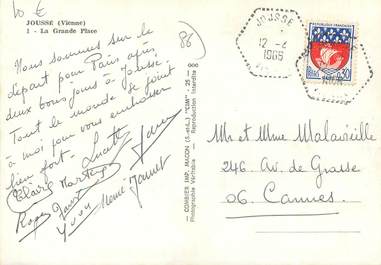 10 €
JOUSSE (Vienne)
1 - La Grande Place
86
Nous sommes sur le
départ pour Paris après
deux bons jours à Jousse.
Tout le monde se joint
à moi pour vous embrasser
bien fort. Lucette
Claire Martine
Roger
Yvon Mémé Jannet
COMBIER IMP. MACON (S.-et-L.) "CIM" - 25 - 000
Photographie Véritable - Reproduction Interdite
JOUSSE
12 -2
1966
REPUBLIQUE FRANÇAISE
PARIS
0,30
Mr et Mme Malavieille
246 Av. de Grasse
06. Cannes.